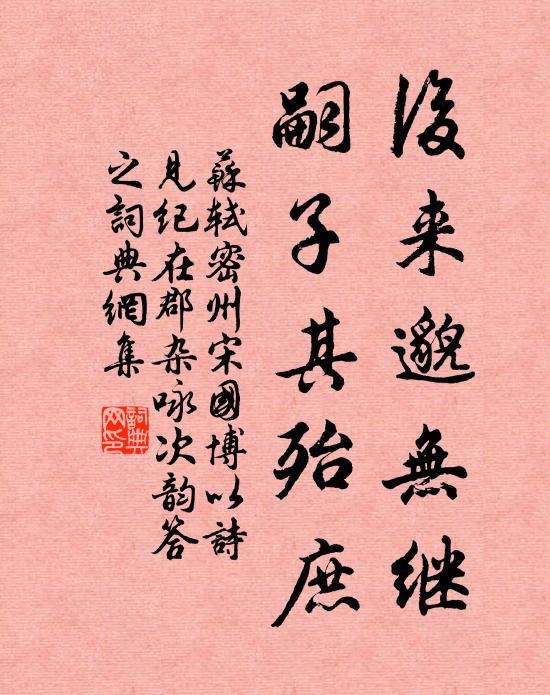 後来邈無继
嗣子其殆庶
蘇轼密州宋國博以詩
見纪在郡杂咏次韵答
之詞典網集
詞典
网印